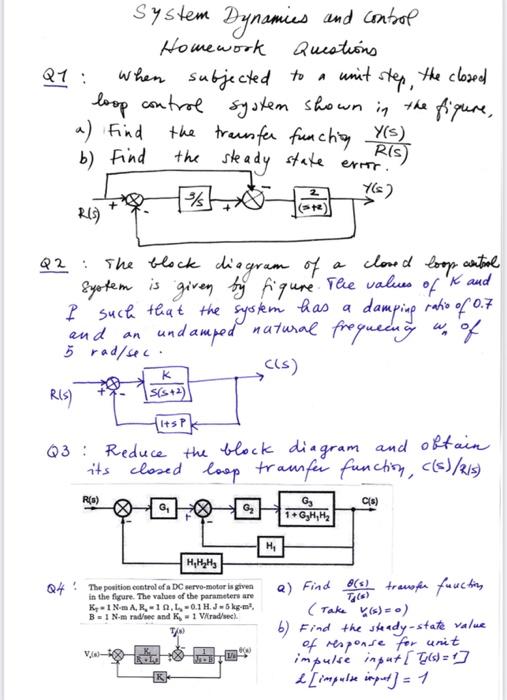 System Dynamics and control
Homework Questions
Q1 : When subjected to a unit step, the closed
loop control system shown in the figure,
a) Find the transfer function Y(s)/R(s)
b) Find the steady state error.
R(s) + - 3/s + - 2/(s+2) Y(s)
Q2 : The block diagram of a closed loop control
system is given by figure. The values of K and
P such that the system has a damping ratio of 0.7
and an undamped natural frequency wn of
5 rad/sec.
R(s) + - K/S(S+2) C(s)
1+SP
Q3 : Reduce the block diagram and obtain
its closed loop transfer function, C(s)/R(s)
R(s) G₁ + - G₂ G₃/1+G₃H₁H₂ C(s)
H₁
H₁H₂H₃
Q4 : The position control of a DC servo-motor is given
in the figure. The values of the parameters are
K_T = 1 N-m A, R_a = 1 Ω, L_a = 0.1 H. J = 5 kg-m²,
B = 1 N-m rad/sec and K_b = 1 V/(rad/sec).
T_d(s)
V_a(s) K_T/R_a+L_a s 1/Js+B 1/s θ(s)
K_b
a) Find θ(s)/T_d(s) transfer function
(Take V_a(s)=0)
b) Find the steady-state value
of response for unit
impulse input [T_d(s)=1]
L[impulse input] = 1